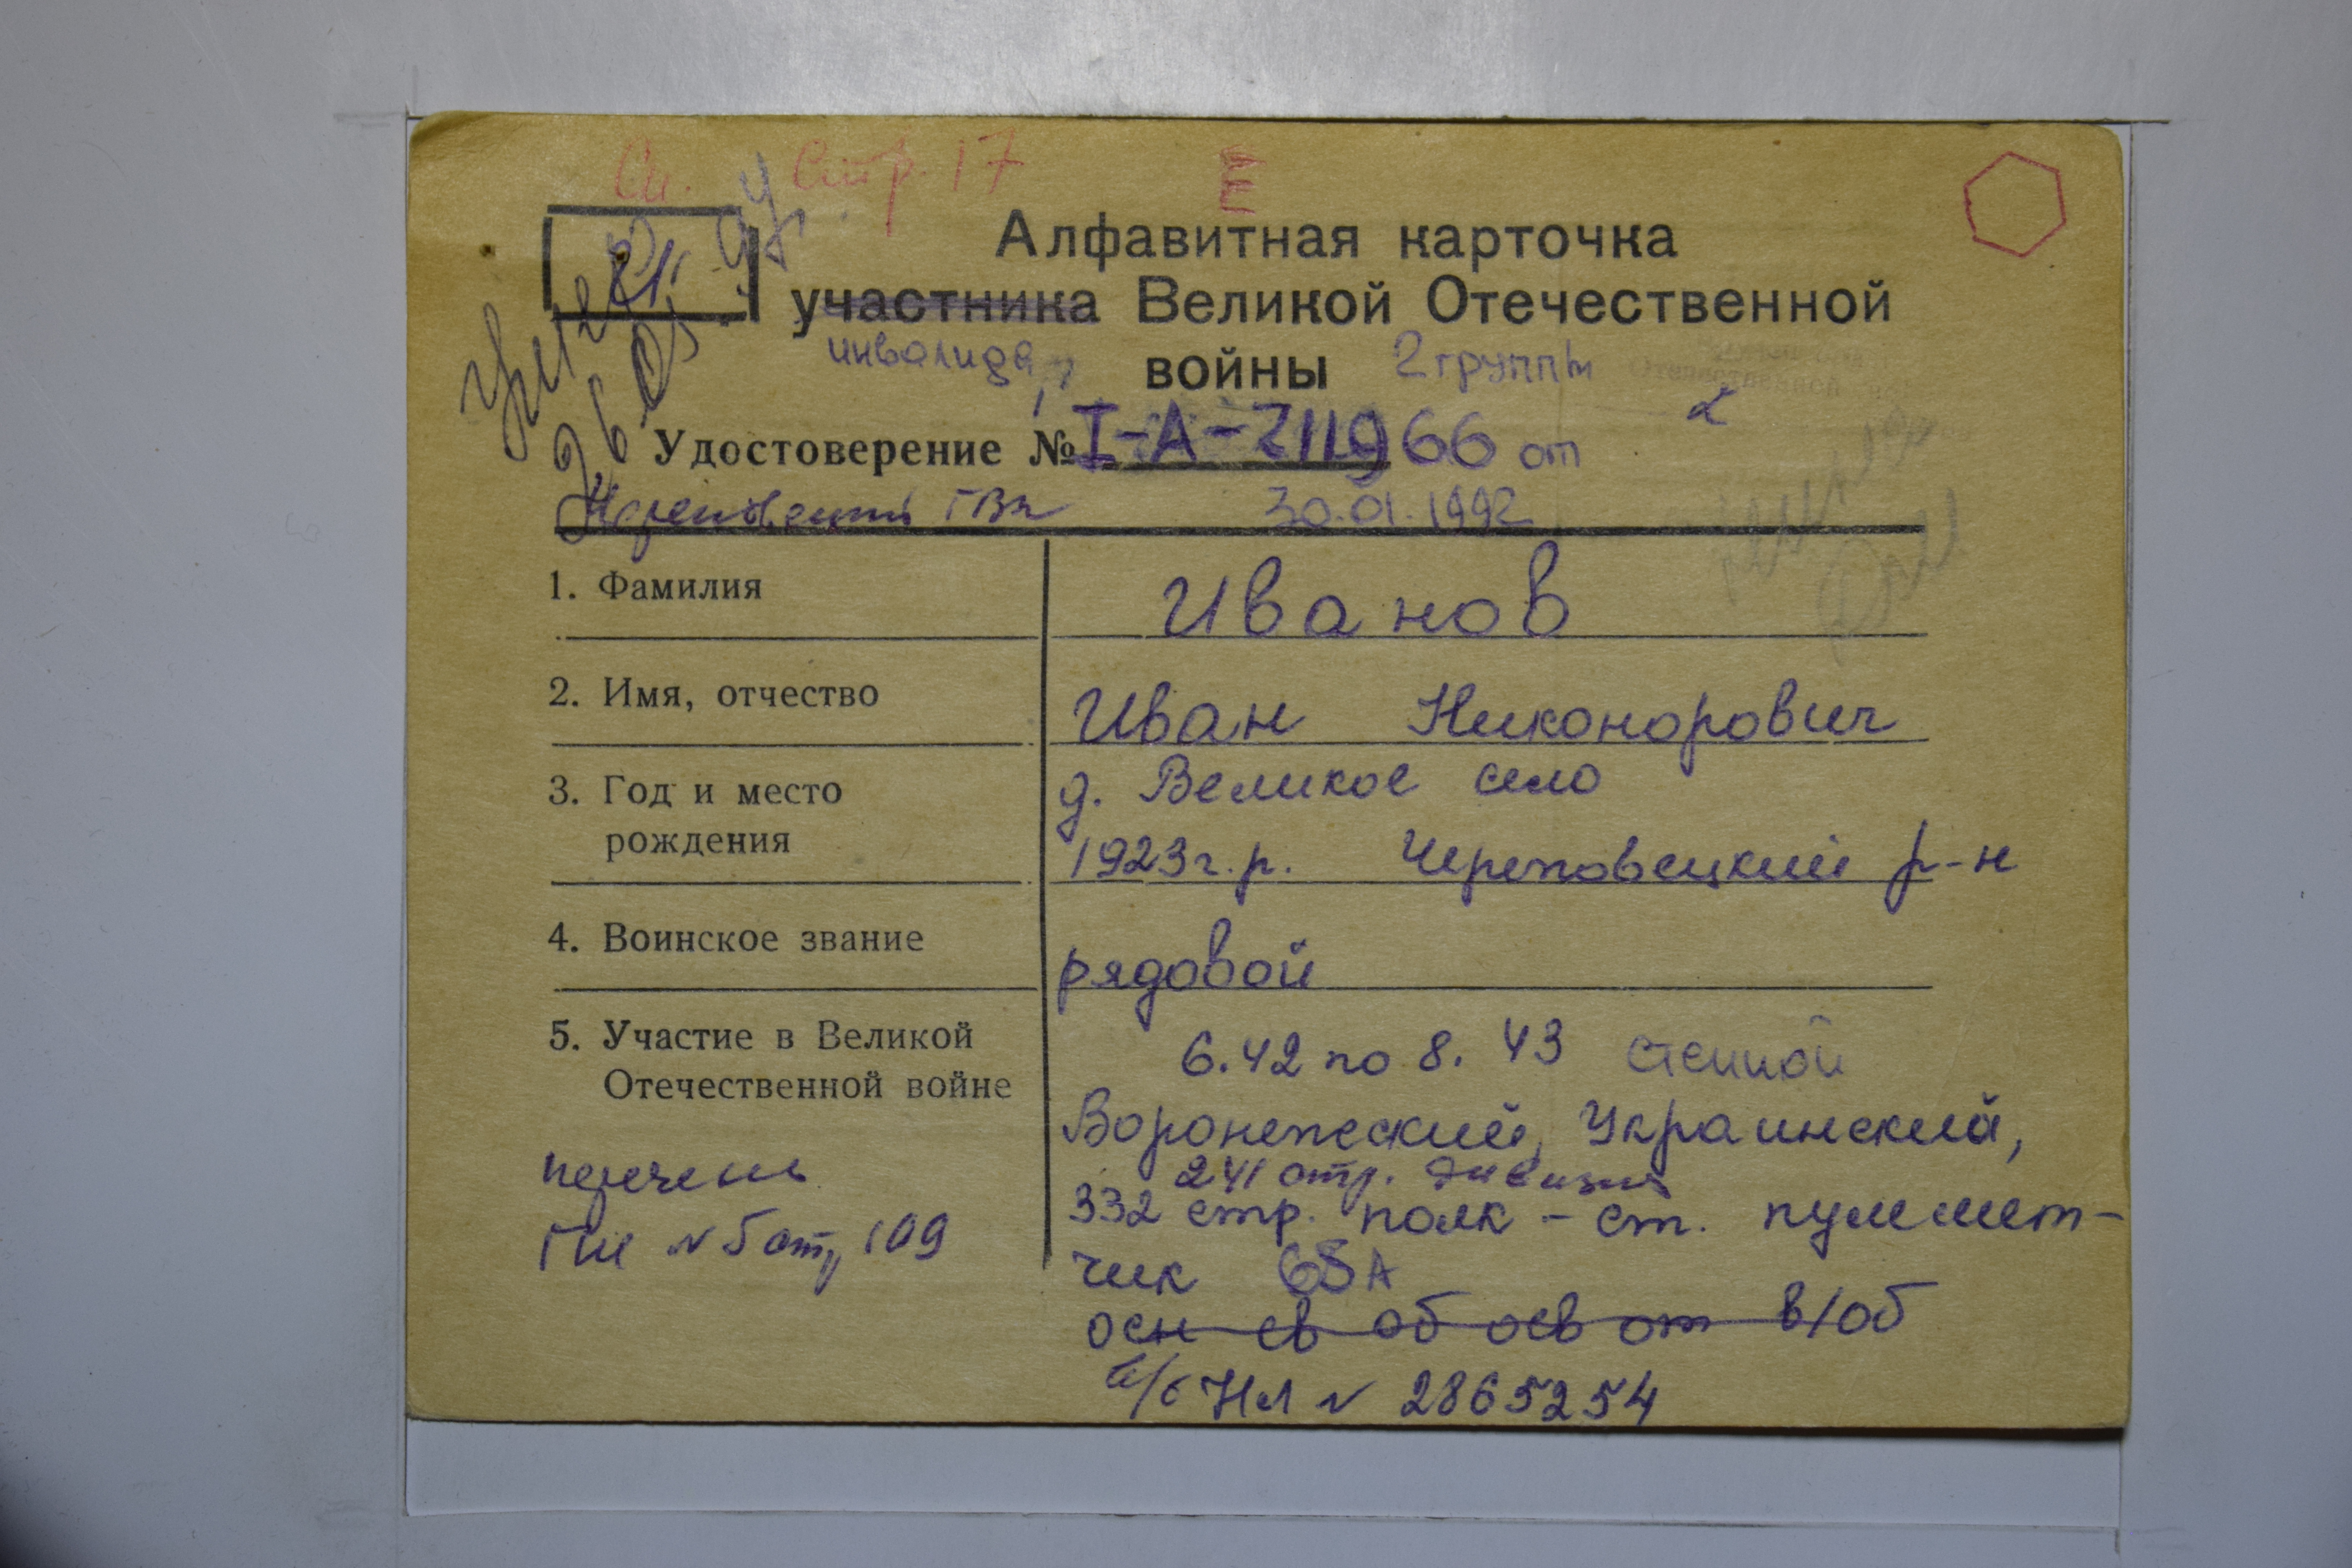 Сл. Стр. 17 Е
Алфавитная карточка
участника Великой Отечественной
инвалида войны 2 группы
Удостоверение № I-А-711966 от
Череповецкий ГВК 30.01.1992
1. Фамилия Иванов
2. Имя, отчество Иван Никонорович
3. Год и место д. Великое село
рождения 1923г.р. Череповецкий р-н
4. Воинское звание рядовой
5. Участие в Великой 6.42 по 8.43 степной
Отечественной войне
Воронежский, Украинский,
перечень 241 стр. дивизия
332 стр. полк - ст. пулемет-
ГШ № 5 стр 109
чик 65А
осн св об осв от в/об
в/б НМ № 2865254